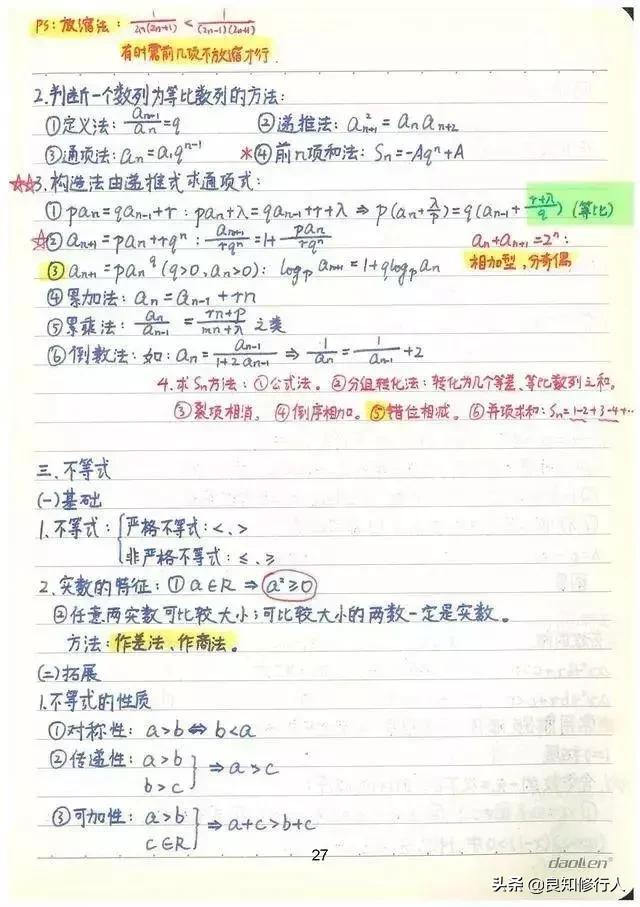 PS: 放缩法: 1/2n(2n+1) < 1/(2n-1)(2n+1)
有时需前几项不放缩才行.
2.判断一个数列为等比数列的方法:
①定义法: aₙ₊₁/aₙ=q ②递推法: a²ₙ₊₁=aₙaₙ₊₂
③通项法: aₙ=a₁qⁿ⁻¹ *④前n项和法: Sₙ=-Aqⁿ+A
☆☆3.构造法由递推式求通项式:
①paₙ=qaₙ₋₁+r: paₙ+λ=qaₙ₋₁+r+λ ⇒ p(aₙ+λ/p)=q(aₙ₋₁+(r+λ)/q) (等比)
☆②aₙ₊₁=paₙ+rqⁿ: aₙ₊₁/rqⁿ=1+paₙ/rqⁿ aₙ+aₙ₊₁=2ⁿ:
③aₙ₊₁=paₙ^q(q>0,aₙ>0): logₚaₙ₊₁=1+qlogₚaₙ 相加型,分奇偶
④累加法: aₙ=aₙ₋₁+rn
⑤累乘法: aₙ/aₙ₋₁=(rn+p)/(mn+λ)之类
⑥倒数法:如: aₙ=aₙ₋₁/(1+2aₙ₋₁) ⇒ 1/aₙ=1/aₙ₋₁+2
4.求Sₙ方法:①公式法。②分组转化法:转化为几个等差、等比数列之和。
③裂项相消。④倒序相加。⑤错位相减。⑥并项求和:Sₙ=1-2+3-4+…
三.不等式
(一)基础
1.不等式:{严格不等式:<、>
非严格不等式:≤、≥
2.实数的特征:①a∈R ⇒ a²≥0
②任意两实数可比较大小;可比较大小的两数一定是实数。
方法:作差法、作商法。
(二)拓展
1.不等式的性质
①对称性: a>b ⇔ b<a
②传递性: a>b
b>c } ⇒ a>c
③可加性: a>b
c∈R } ⇒ a+c>b+c
27
daolen
头条 @良知修行人